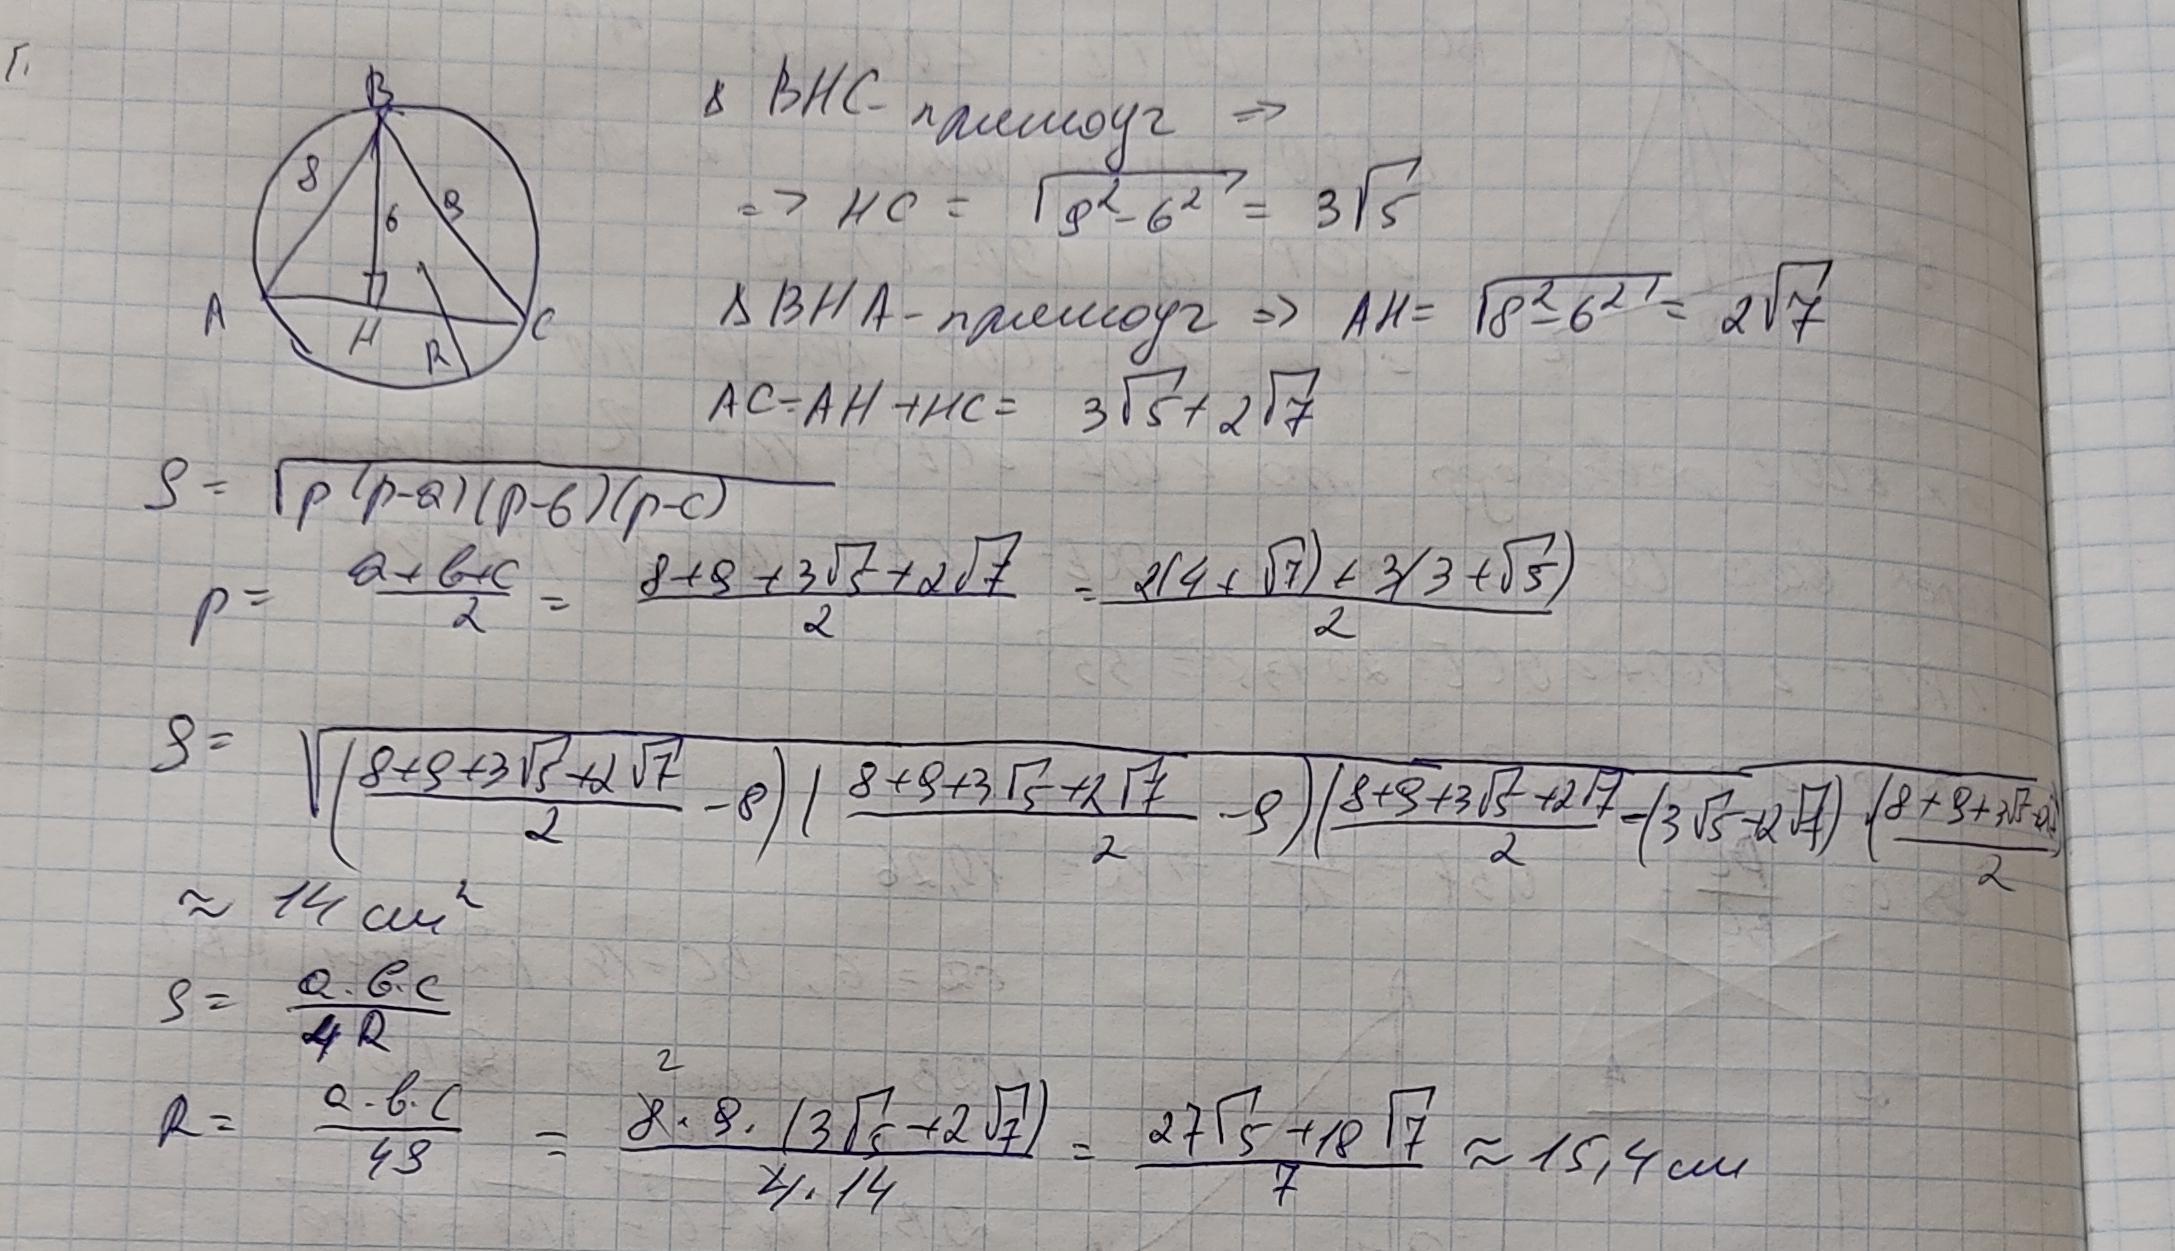 1.
B
8
6
9
A
H
R
C
Δ BHC - прямоуг ⇒
⇒ HC = √(9² - 6²) = 3√5
Δ BHA - прямоуг ⇒ AH = √(8² - 6²) = 2√7
AC = AH + HC = 3√5 + 2√7
S = √(p(p-a)(p-b)(p-c))
p = (a+b+c)/2 = (8+9+3√5+2√7)/2 = (2(4+√7)+3(3+√5))/2
S = √(((8+9+3√5+2√7)/2 - 8)((8+9+3√5+2√7)/2 - 9)((8+9+3√5+2√7)/2 - (3√5+2√7)) · ((8+9+3√5+2√7)/2))
≈ 14 см²
S = (a·b·c)/(4R)
R = (a·b·c)/(4S) = (8·9·(3√5+2√7))/(4·14) = (27√5+18√7)/7 ≈ 15,4 см